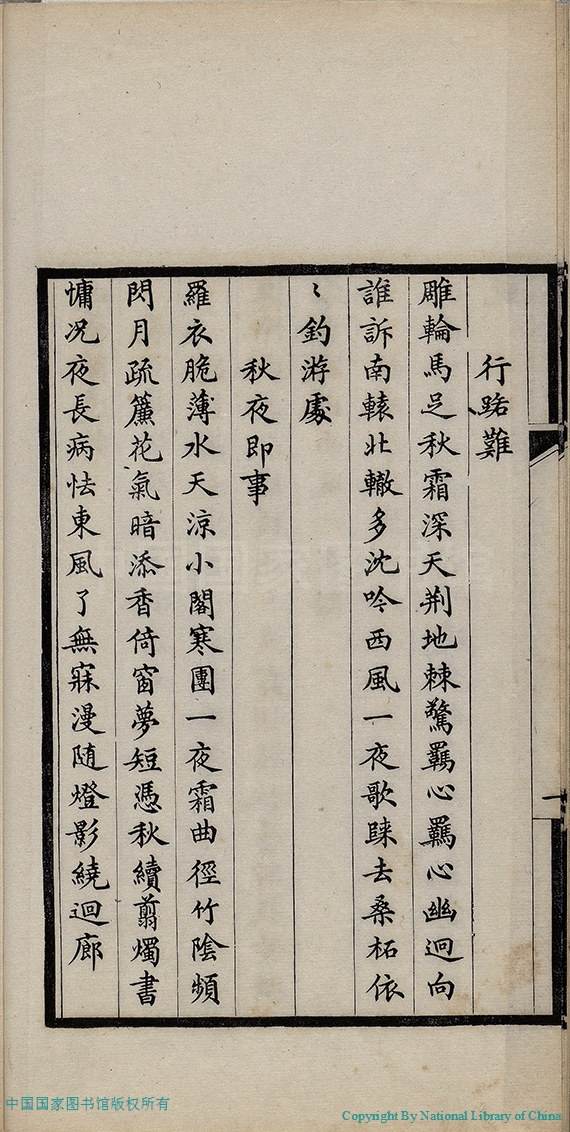 行路難
雕輪馬足秋霜深天荆地棘驚羈心羈心幽迥向
誰訴南轅北轍多沈吟西風一夜歌踈去桑柘依
〻釣游處
秋夜即事
羅衣脆薄水天涼小閣寒團一夜霜曲徑竹陰頻
閃月疏簾花氣暗添香倚窗夢短憑秋續翦燭書
慵况夜長病怯東風了無寐漫随燈影繞迴廊
中国国家图书馆版权所有
Copyright By National Library of China